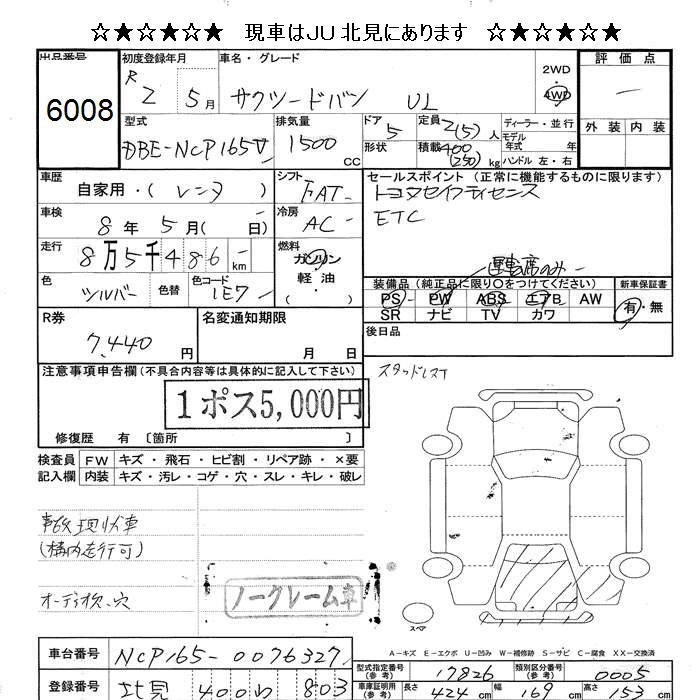 ☆★☆★☆ 現車はJU北見にあります ☆★☆★☆
出品番号
6008
初度登録年月
R 2 5月
車名・グレード
サクシードバン UL
2WD
4WD
評価点
ー
外装 内装
型式
DBE-NCP165V
排気量
1500 CC
ドア
5
形状
定員 2(5) 人
積載 400 (250) kg
ディーラー・並行
モデル
年式 年
ハンドル 左・右
車歴
自家用・(レンタ)
シフト
FAT-
セールスポイント(正常に機能するものに限ります)
トヨタセイフティセンス
ETC
車検
8年 5月( 日)
冷房
AC-
走行
8万5千486-km
燃料
ガソリン
軽油
( ・ )
運転席のみ
色
シルバー
色替
色コード
1E7
装備品(純正品に限り○をつけてください)
PS PW ABS エアB AW
SR ナビ TV カワ
新車保証書
有・無
R券
7,440 円
名変通知期限
月 日
後日品
注意事項申告欄(不具合内容等は具体的に記入して下さい)
1ポス5,000円
修復歴 有 〔箇所 〕
スタッドレスT
検査員
記入欄
FW キズ・飛石・ヒビ割・リペア跡・×要
内装 キズ・汚レ・コゲ・穴・スレ・キレ・破レ
事故現状車
(構内走行可)
オーディオ欠、穴
ノークレーム車
スペア
A-キズ E-エクボ U-凹み W-補修跡 S-サビ C-腐食 XX-交換済
車台番号
NCP165-0076327
型式指定番号
(参考)
17826
類別区分番号
(参考)
0005
登録番号
北見 400 わ 803
車庫証明用
(参考)
長さ 424 cm 幅 169 cm 高さ 153 cm